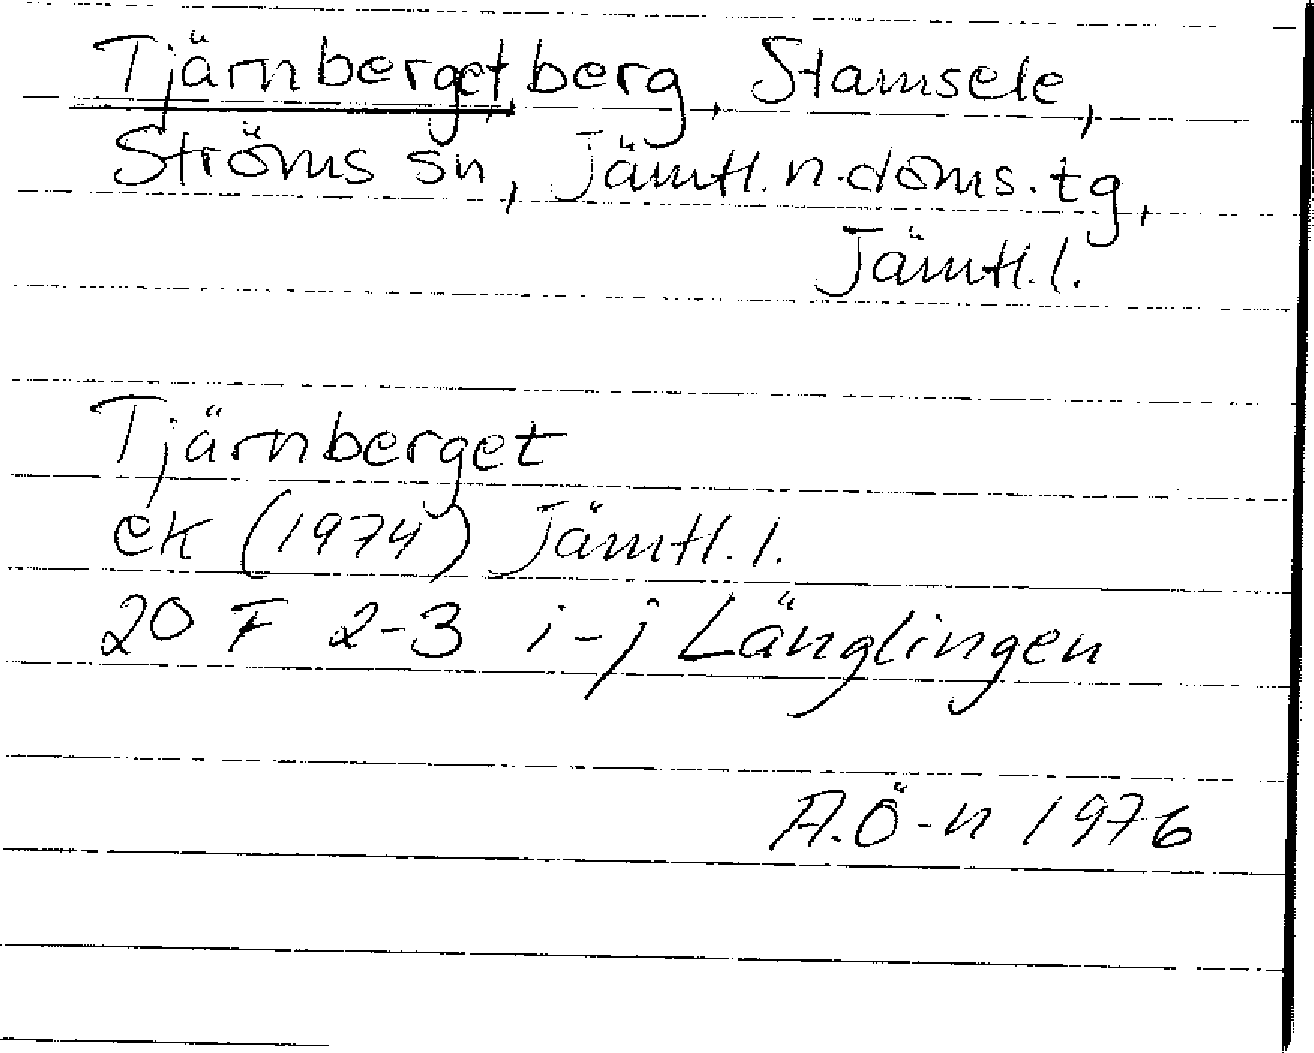 Tjärnberget, berg, Stamsele,
Ströms sn, Jämtl. n. doms. tg,
Jämtl. l.
Tjärnberget
ek (1974) Jämtl. l.
20 F 2-3 i-j Länglingen
A.Ö-n 1976